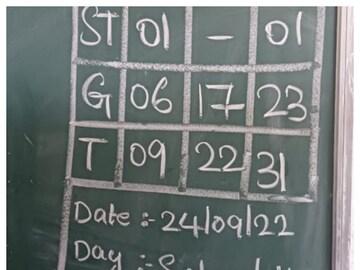 ST 01 - 01
G 06 17 23
T 09 22 31
Date :- 24/09/22
Day :-